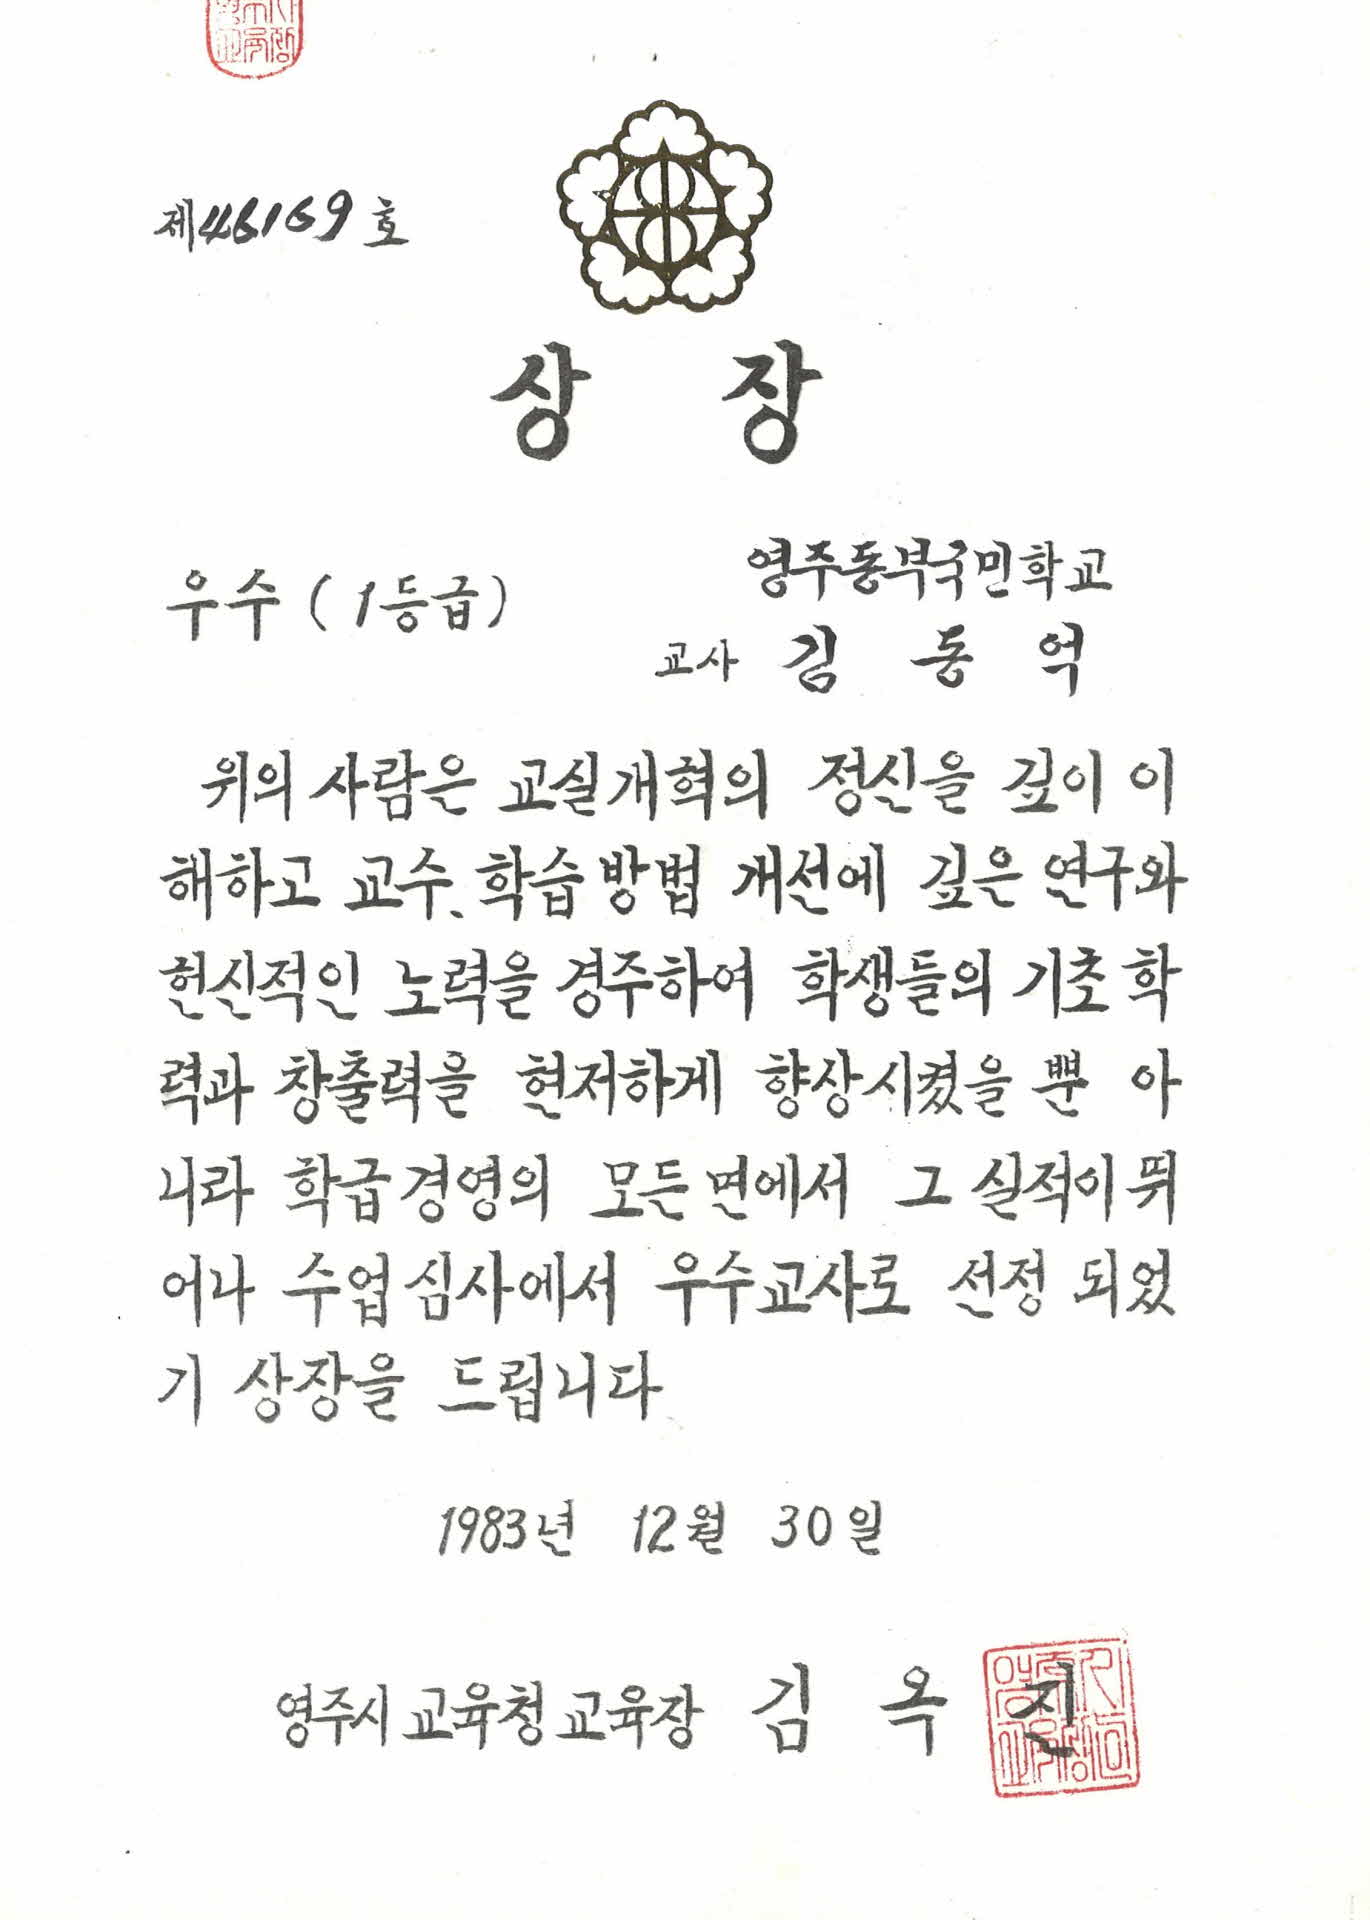 제46169호
상 장
우수(1등급)
영주동부국민학교
교사 김 동 억
위의 사람은 교실개혁의 정신을 깊이 이
해하고 교수、학습방법 개선에 깊은 연구와
헌신적인 노력을 경주하여 학생들의 기초학
력과 창출력을 현저하게 향상시켰을뿐 아
니라 학급경영의 모든면에서 그 실적이 뛰
어나 수업심사에서 우수교사로 선정 되었
기 상장을 드립니다
1983년 12월 30일
영주시교육청교육장 김 옥 진